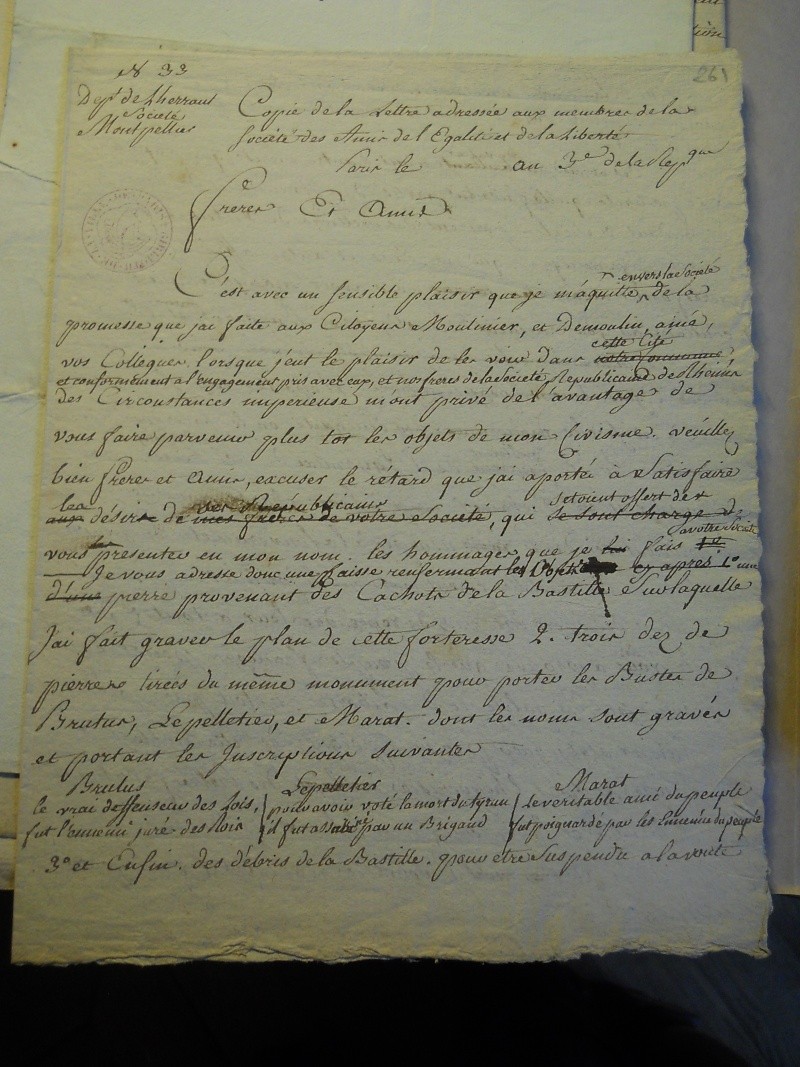 N 33
261
Dept de Lherraut
Société
Montpellier
Copie de la Lettre adressée aux membres de la
Société des Amis de l'Egalité et de la Liberté
Paris le an 3e de la Repque
Freres Et Amis
envers la Société
C'est avec un sensible plaisir que je m'aquitte de la
promesse que jai faite aux Citoyens Moulinier, et Demoulin, ainé,
cette Cité
vos Collegues, lorsque j'eut le plaisir de les voir dans votre commune
et conformément a l'engagement pris avec eux, et nos freres de la Société Republicaine de Rheims
des Circonstances imperieuse mont privé de l'avantage de
vous faire parvenir plus tot les objets de mon Civisme. veuillez
bien freres et Amis, excuser le rétard que jai aporté à Satisfaire
les vrais Republicains setoient offert de
aux désirs de mes freres de votre Société, qui se sont chargé de
a votre Société
vous les presenter en mon nom. les hommages que je lui fais
Je vous adresse donc une Caisse renfermant les Objets ci après 1º une
d'une pierre provenant des Cachots de la Bastille Sur laquelle
J'ai fait graver le plan de cette forteresse 2. trois dez de
pierres tirées du même monument pour porter les Bustes de
Brutus, Lepelletier, et Marat. dont les noms sont gravés
et portant les Inscriptions suivantes
Brutus Lepelletier Marat
le vrai deffenseur des Lois, pour avoir voté la mort du tyran le veritable ami du peuple
fut l'ennemi juré des Rois il fut assassiné par un Brigand fut poignardé par les Ennemis du peuple
3º et Enfin. des débris de la Bastille. pour etre Suspendu a la voute